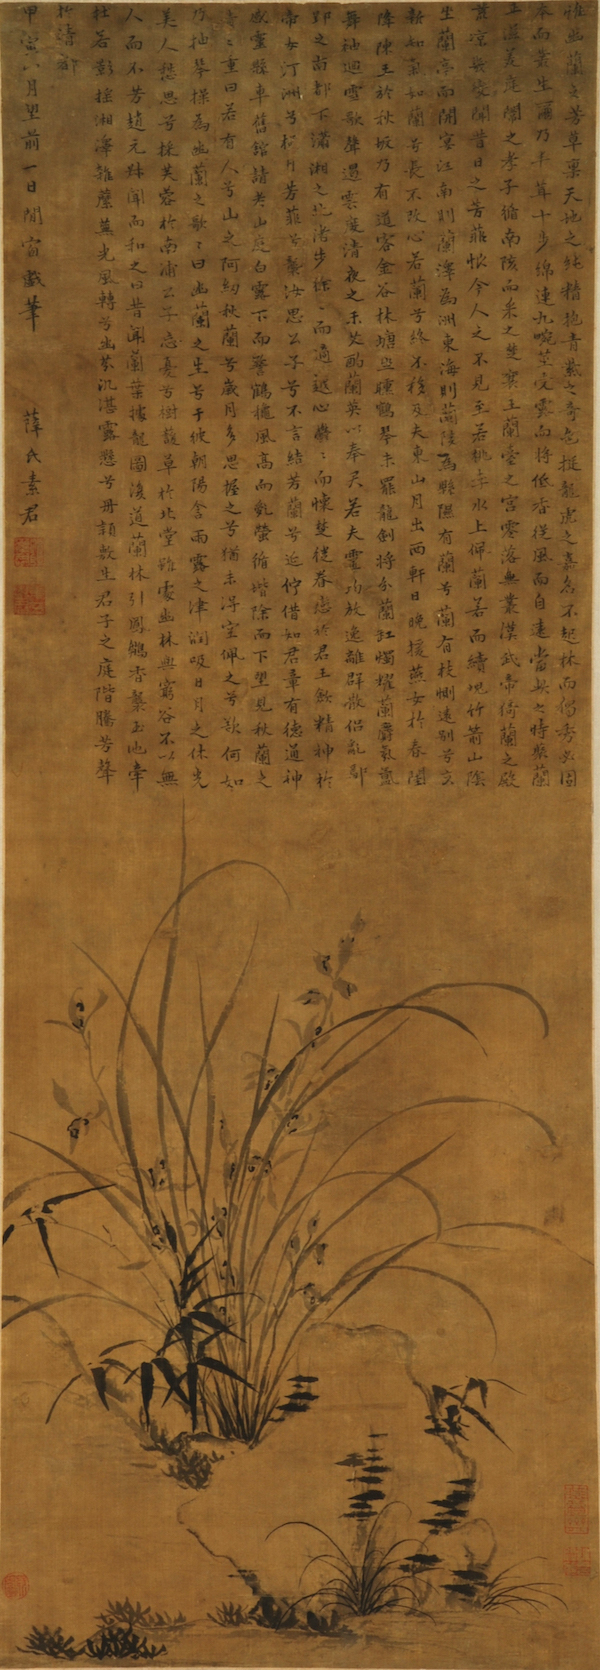 惟幽蘭之芳草稟天地之純精抱青紫之奇色挺龍虎之嘉名不起林而獨秀必固
本而叢生爾乃丰茸十步綿連九畹莖受露而將低香從風而自遠當此之時叢蘭
正滋美庭闈之孝子循南陔而采之楚襄王蘭臺之宮零落無叢漢武帝猗蘭之殿
荒涼幾變聞昔日之芳菲恨今人之不見至若桃花水上佩蘭若而續魂竹箭山陰
坐蘭亭而開宴江南則蘭澤為洲東海則蘭陵為縣隰有蘭兮蘭有枝贈遠別兮交
新知氣如蘭兮長不改心若蘭兮終不移及夫東山月出西軒日晚援燕女於春閨
降陳王於秋坂乃有送客金谷林塘坐曛鶴琴未罷龍劍將分蘭缸燭耀蘭麝氛氳
舞袖迴雪歌聲遏雲度清夜之未艾酌蘭英以奉君若夫靈均放逐離群散侶亂鄢
郢之南都下瀟湘之北渚步徐徐而適越心鬱鬱而懷楚徒眷戀於君王斂精神於
帝女汀洲兮極目芳菲兮襲汝思公子兮不言結芳蘭兮延佇借如君章有德通神
感靈懸車舊館請老山庭白露下而警鶴秋風高而亂螢循堦除而下望見秋蘭之
青青重曰若有人兮山之阿紉秋蘭兮歲月多思握之兮猶未得空佩之兮欲何如
乃抽琴操為幽蘭之歌歌曰幽蘭之生兮于彼朝陽含雨露之津潤吸日月之休光
美人愁思兮採芙蓉於南浦公子忘憂兮樹萱草於北堂雖處幽林與窮谷不以無
人而不芳趙元淑聞而和之曰昔聞蘭葉據龍圖復道蘭林引鳳雛香繁玉池牽
杜若彭搖湘澤雜蘼蕪光風轉兮幽芬汎湛露懸兮丹穎敷生君子之庭階騰芳聲
於清都
甲寅八月望前一日閒窗戲筆 薛氏素君